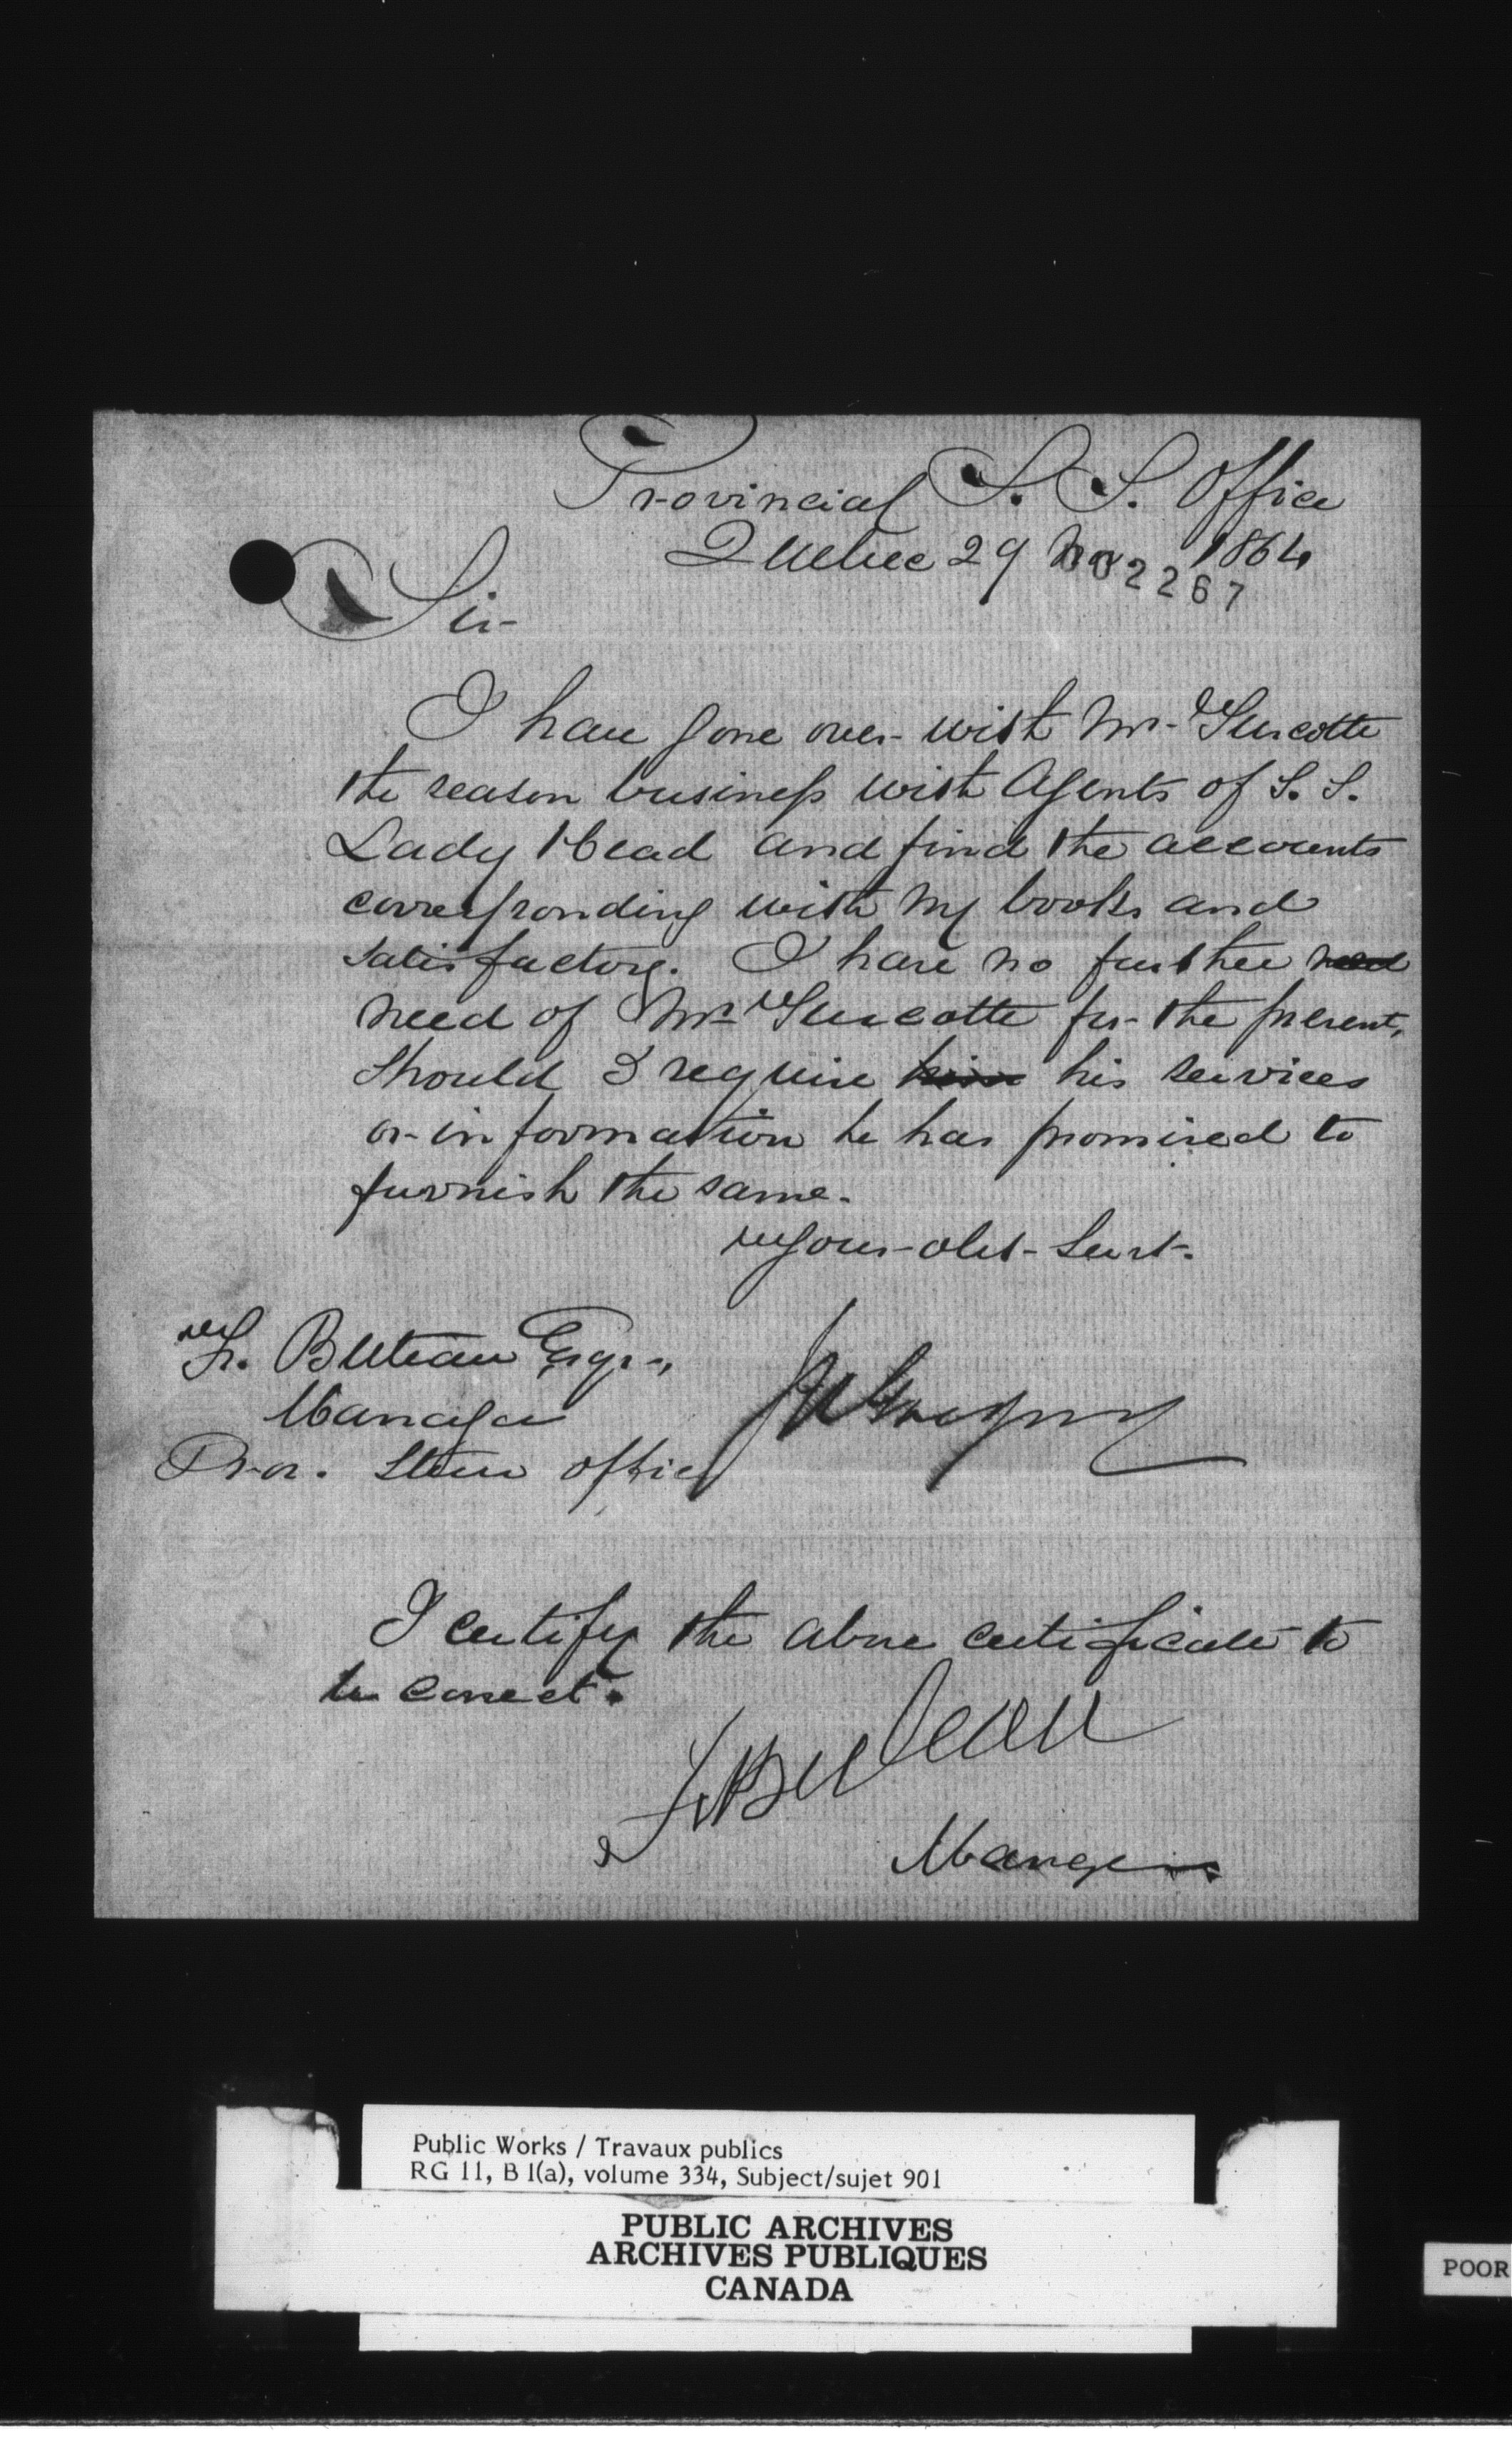 Provincial S. S. Office
Quebec 29 Nov 1864
002267
Sir
I have gone over with Mr. Turcotte
the season business with Agents of S. S.
Lady Head and find the accounts
corresponding with my books and
satisfactory. I have no further need
need of Mr Turcotte for the present,
should I require him his services
or information he has promised to
furnish the same.
your obt Servt.
F. Buteau Esqr,
Manager
Pro. Steam office
I certify the above certificate to
be correct.
F. Buteau
Manager
Public Works / Travaux publics
RG 11, B 1(a), volume 334, Subject/sujet 901
PUBLIC ARCHIVES
ARCHIVES PUBLIQUES
CANADA
POOR